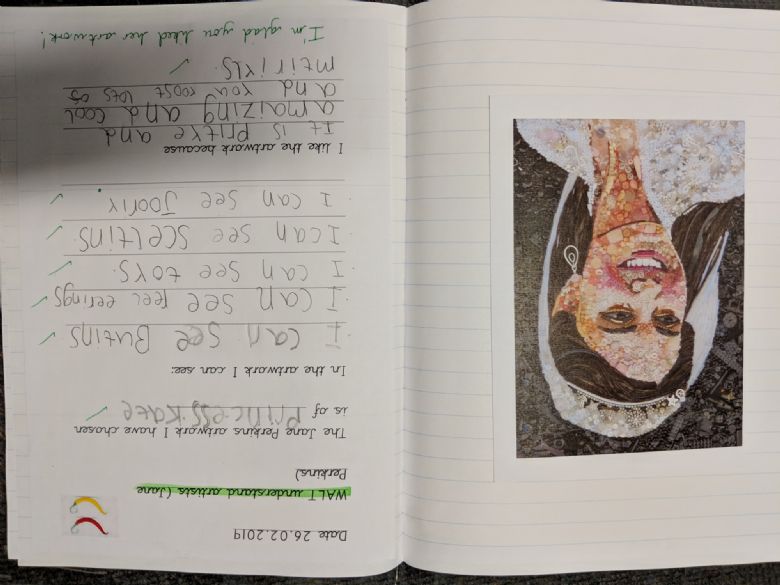 Date 26.02.2019
WALT understand artists (Jane
Perkins)
The Jane Perkins artwork I have chosen
is of Princess.Kate
In the artwork I can see:
I can see Butins
I can see feel eerings
I can see toys.
I can see sceltins.
I can see
I like the artwork because
It is and
amaizing and cool
and you roost lots of
I'm glad you liked her artwork!